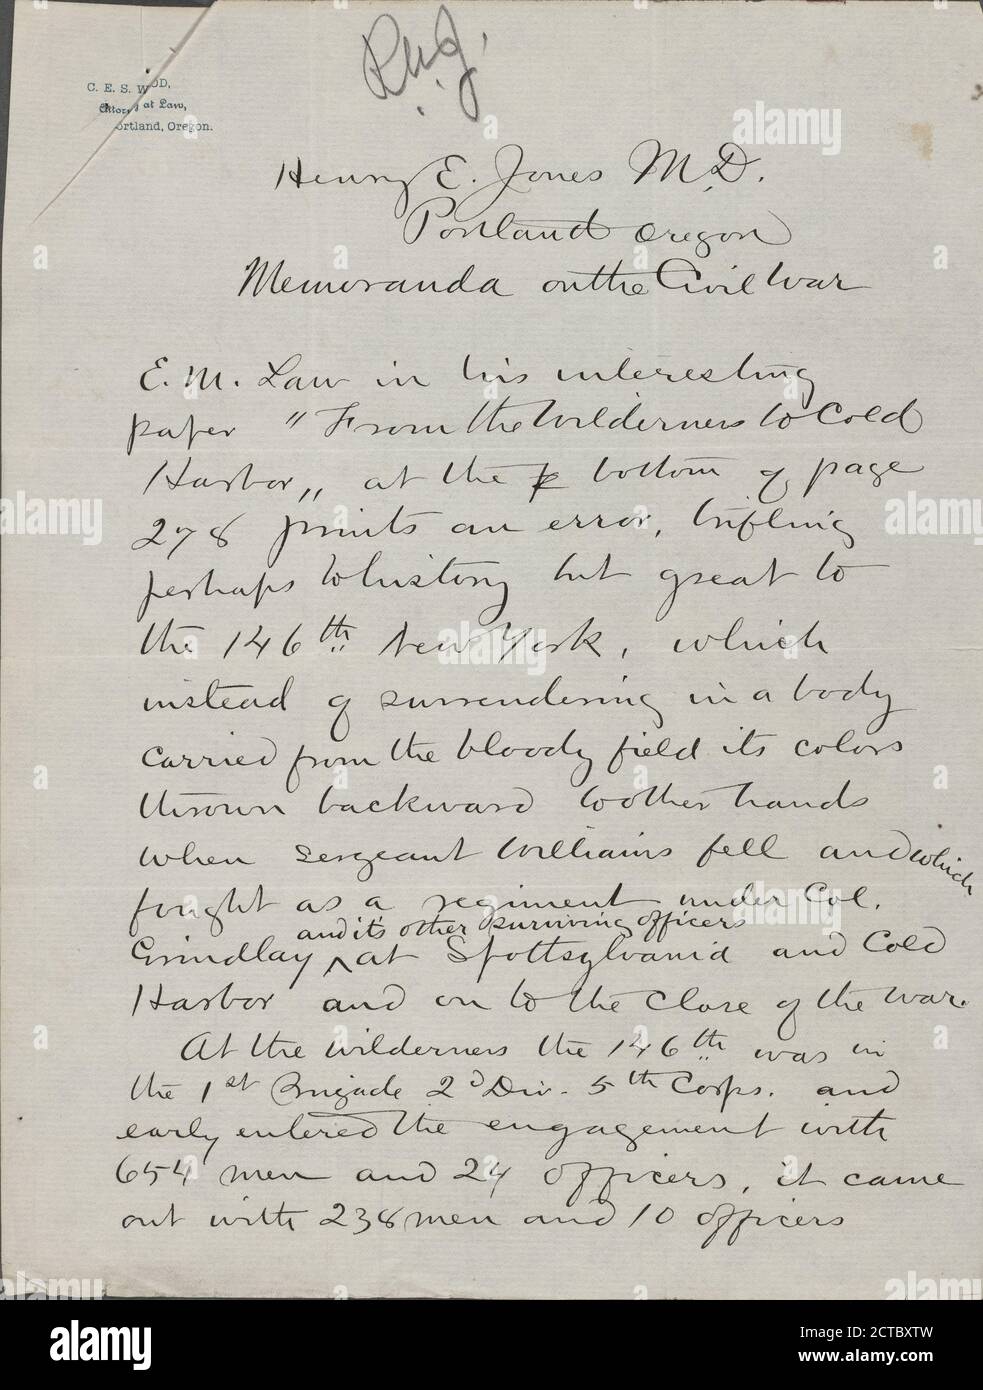 C. E. S. WOOD,
Attorney at Law,
Portland, Oregon.
Henry E. Jones M.D.
Portland Oregon
Memoranda on the Civil War
E. M. Law in his interesting
paper "From the Wilderness to Cold
Harbor" at the bottom of page
278 prints an error, trifling
perhaps to history but great to
the 146th New York, which
instead of surrendering in a body
carried from the bloody field its colors
thrown backward to other hands
when sergeant Williams fell and which
fought as a regiment under Col.
and it's other surviving officers
Grindlay ^ at Spottsylvania and Cold
Harbor and on to the close of the war.
At the wilderness the 146th was in
the 1st Brigade 2d Div. 5th Corps. and
early entered the engagement with
654 men and 24 officers, it came
out with 238 men and 10 officers
alamy
Image ID: 2CTBXTW
www.alamy.com